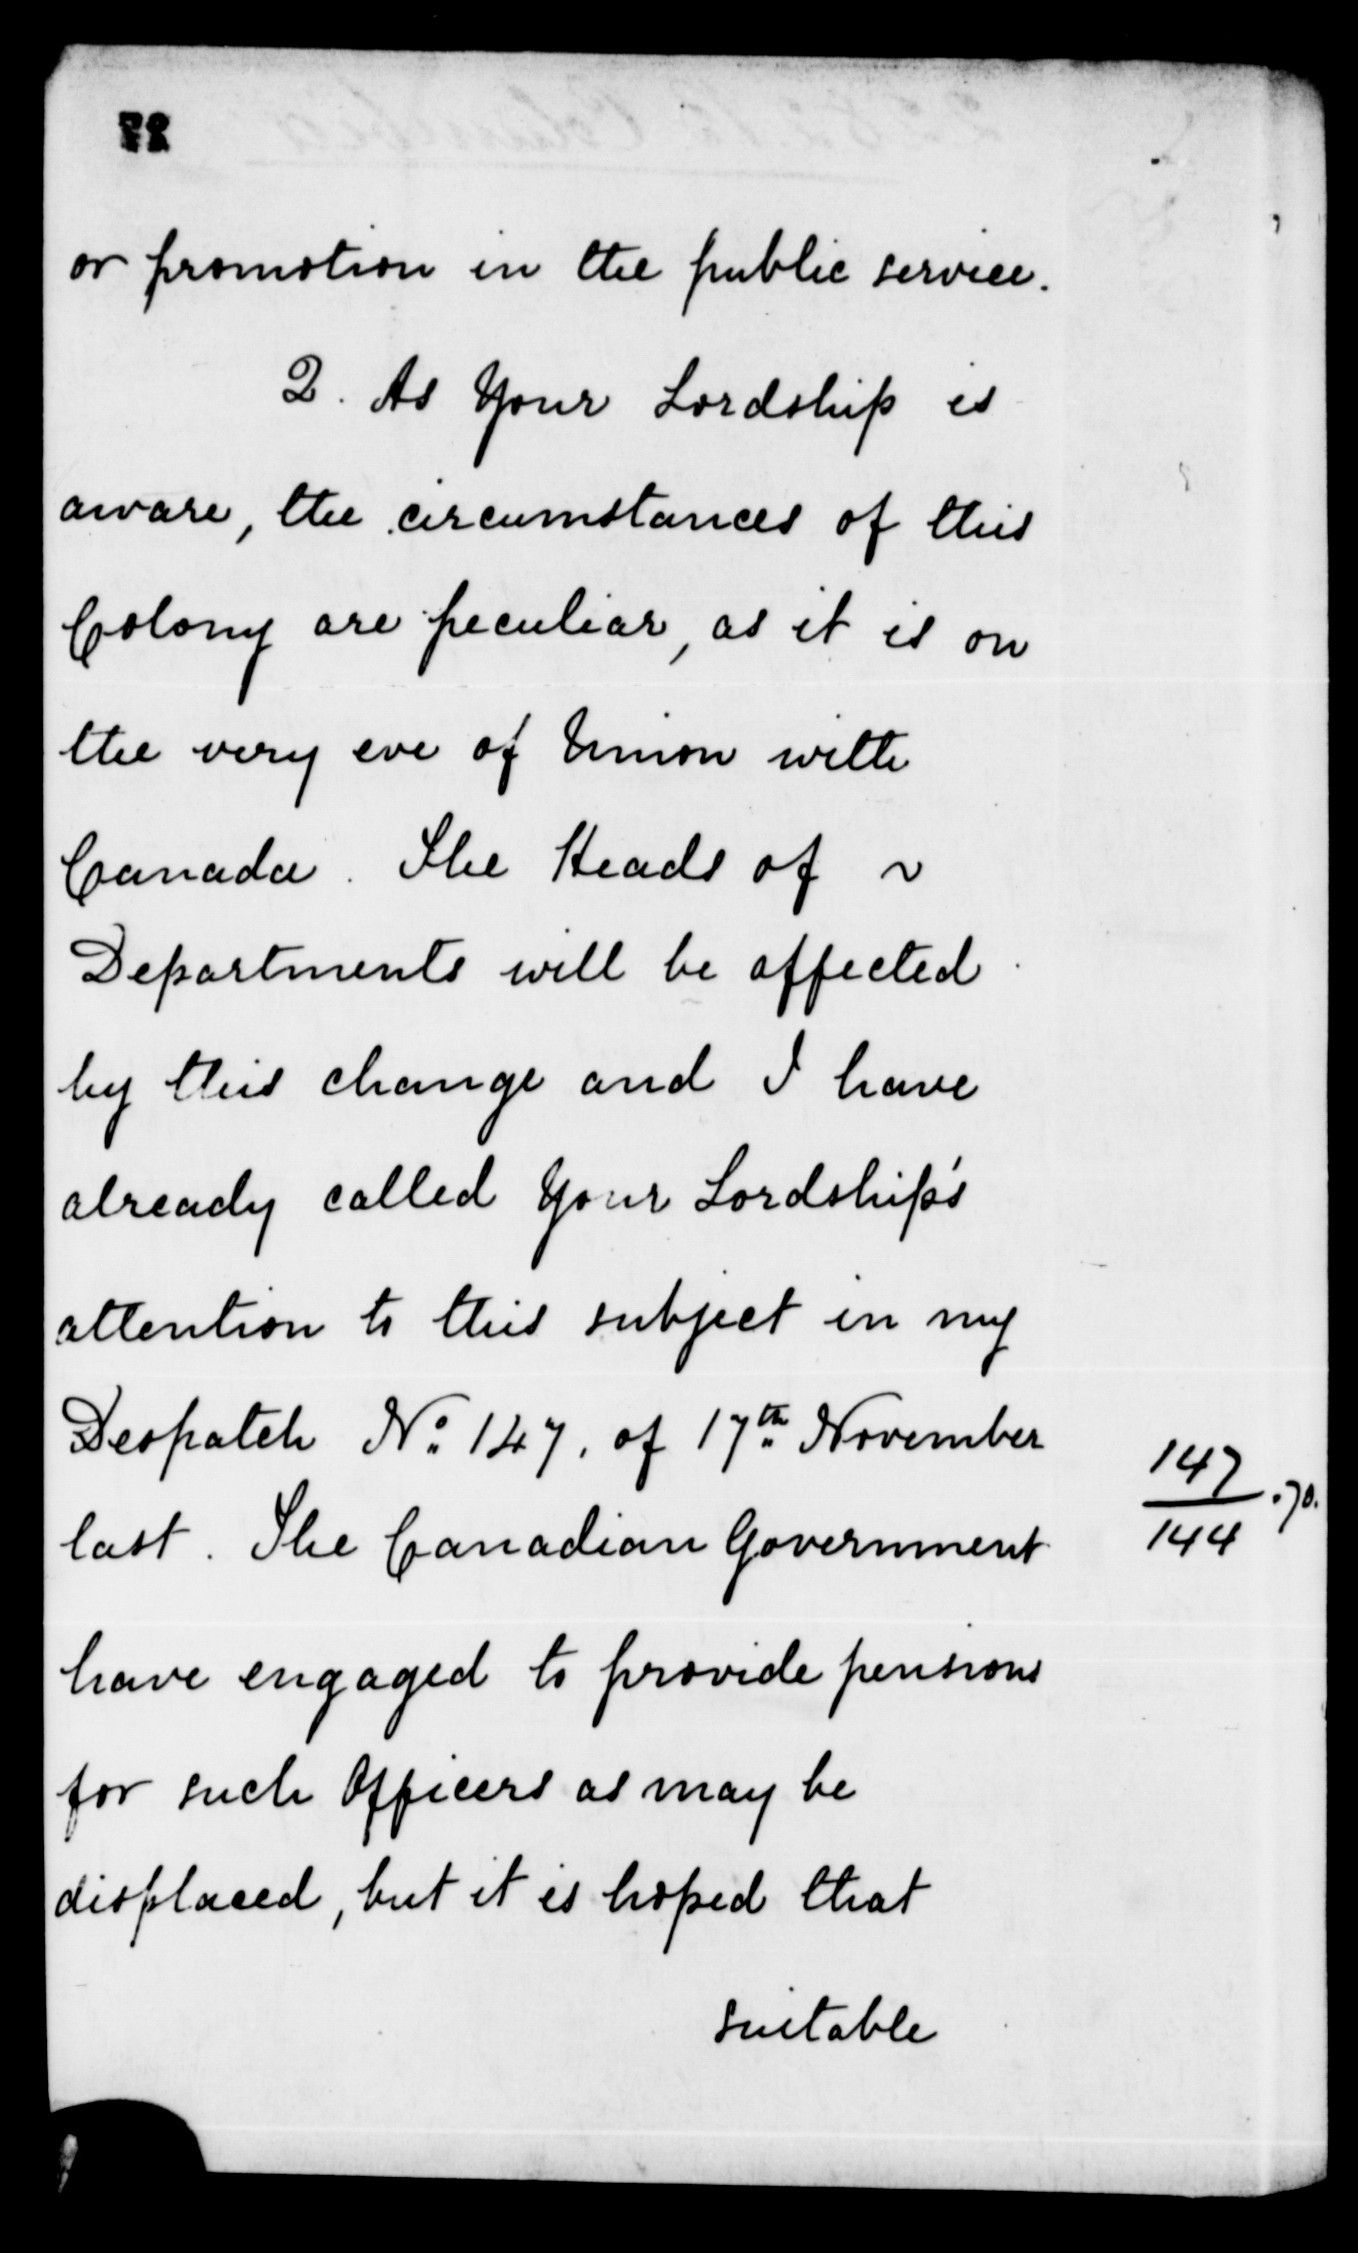 or promotion in the public service.
2. As Your Lordship is
aware, the circumstances of this
Colony are peculiar, as it is on
the very eve of Union with
Canada. The Heads of
Departments will be affected
by this change and I have
already called Your Lordship's
attention to this subject in my
Despatch No. 147, of 17th November
last. The Canadian Government
147
144 .70.
have engaged to provide pensions
for such Officers as may be
displaced, but it is hoped that
suitable